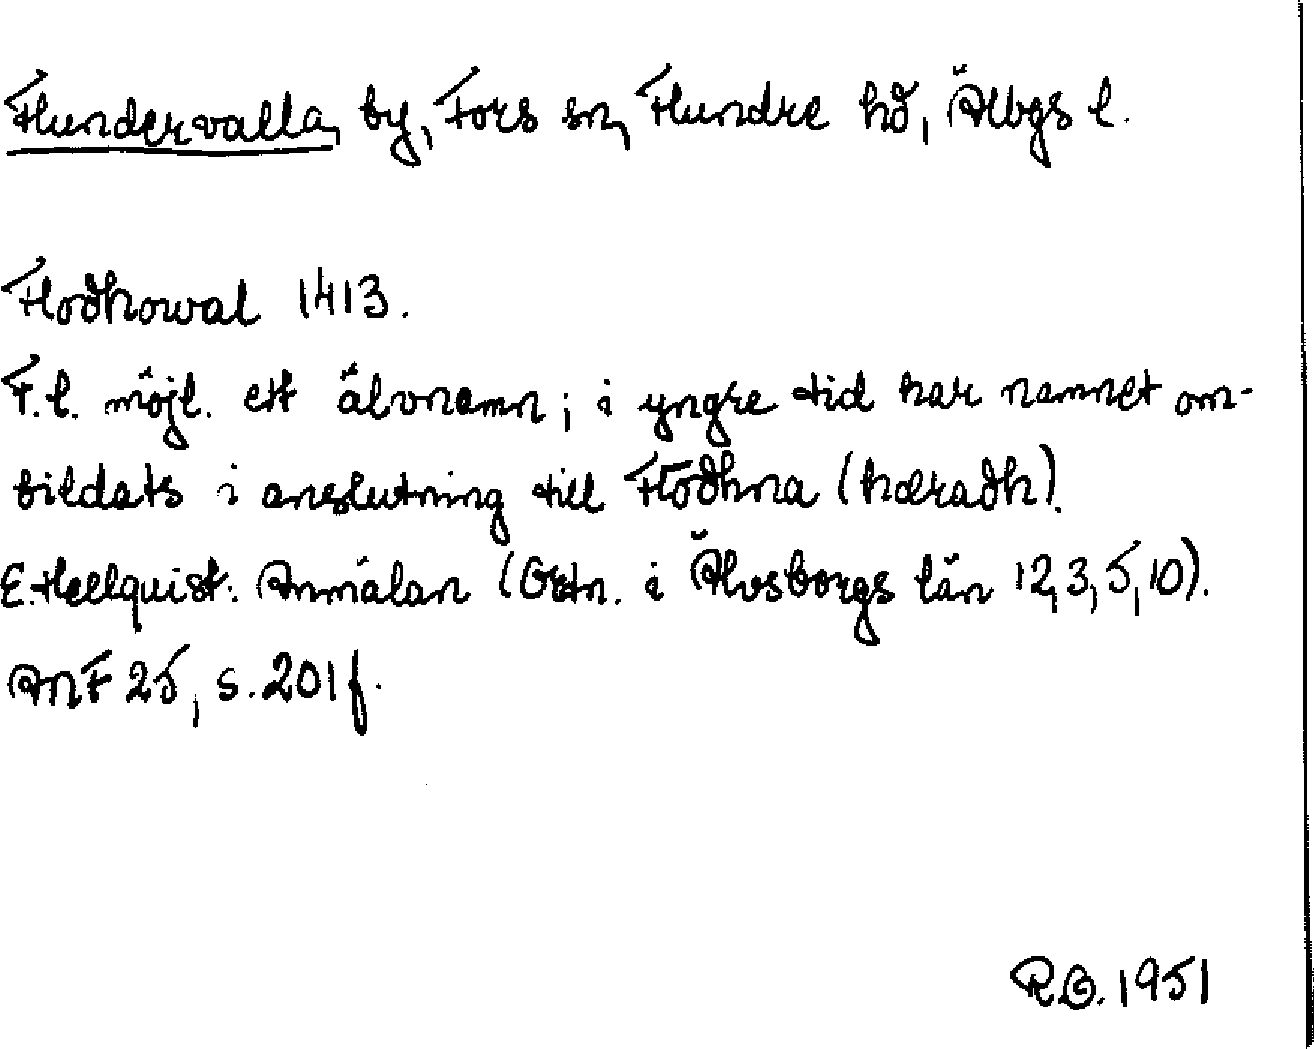 Flundervalla, by, Fors sn, Flundre hd, Älvbgs l.
Flodhowal 1413.
F.l. möjl. ett älvnamn; i yngre tid har namnet om-
bildats i anslutning till Flodhna (hæradh).
E. Hellquist. Anmälan (Ortn. i Älvsborgs län 12, 3, 5, 10).
ANF 25, s. 201 f.
R.G. 1951